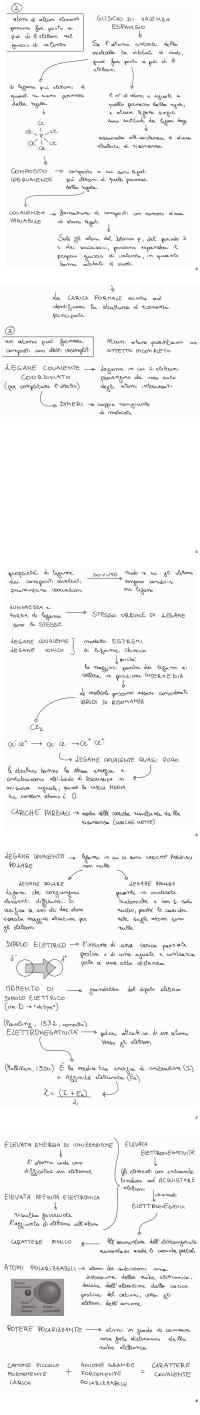 ②
atomi di alcuni elementi
possono far parte a
più di 8 elettroni nel
guscio di valenza
GUSCIO DI VALENZA
ESPANSO
Se l'atomo centrale della
molecola ha orbitali d vuoti,
può far parte a più di 8
elettroni
si legano più elettroni di
quanti ne siano permessi
dalla regola
il n° di atomi è uguale a
quello permesso dalla regola,
e alcuni legami singoli
sono sostituiti da legami doppi
associata all'esistenza di diverse
strutture di risonanza
COMPOSTO → composto a cui sono legati
IPERVALENTE più elettroni di quelli permessi
dalla regola
COVALENZA → formazione di composti con numero diverso
VARIABILE di atomi legati
Solo gli atomi del blocco p, del periodo 3
o dei successivi, possono espandere il
proprio guscio di valenza, in quanto
hanno orbitali d vuoti.
La CARICA FORMALE aiuta ad
identificare la struttura di risonanza
principale
③
un atomo può formare
composti con ottetti incompleti
Alcuni atomi presentano un
OTTETTO INCOMPLETO
LEGAME COVALENTE → Legame in cui 2 elettroni
COORDINATO provengono da uno solo
(per completare l'ottetto) degli atomi interessati
DIMERI → coppie congiunte
di molecole
proprietà di legame
dei composti covalenti
presentano variazioni
DOVUTE
modo in cui gli elettroni
vengono condivisi
nei legami
LUNGHEZZA e
FORZA di legame → STESSO ORDINE DI LEGAME
sono le STESSE
LEGAME COVALENTE
LEGAME IONICO
modelli ESTREMI
di legame chimico
poiché
la maggior parte dei legami si
colloca in posizione INTERMEDIA
le molecole possono essere considerate
IBRIDI DI RISONANZA
Cl₂
LEGAME COVALENTE QUASI PURO
le strutture hanno la stessa energia e
contribuiscono all'ibrido di risonanza in
misura uguale, quindi la CARICA MEDIA
su ciascun atomo è 0
CARICHE PARZIALI → medie delle cariche risultante dalla
risonanza (CARICHE NETTE)
LEGAME COVALENTE → legami in cui ci sono CARICHE PARZIALI
POLARE non nulle
LEGAME POLARE
legami che congiungono
elementi differenti, si
verifica se uno dei due atomi
esercita maggiore attrazione per
gli elettroni
presente in molecole
biatomiche e con 1 solo
nucleo, poiché le cariche
nette sugli atomi sono
nulle
DIPOLO ELETTRICO → l'insieme di una carica parziale
positiva e di una uguale e contraria
posta a una certa distanza
MOMENTO DI → grandezza del dipolo elettrico
DIPOLO ELETTRICO
(in D → "debye")
(Pauling, 1932, concetto)
ELETTRONEGATIVITÀ → potere attrattivo di un atomo
verso gli elettroni
(Mulliken, 1934) È la media tra energia di ionizzazione (I)
e Affinità elettronica (Ea)
χ = (I + Ea) / 2
ELEVATA ENERGIA DI IONIZZAZIONE
l'atomo cede con
difficoltà un elettrone
ELEVATA AFFINITÀ ELETTRONICA
risulta favorevole
l'aggiunta di elettroni all'atomo
ELEVATA
ELETTRONEGATIVITÀ
Gli elementi con entrambe
tendono ad ACQUISTARE
elettroni
chiamati
ELETTRONEGATIVI
CARATTERE IONICO ← All'aumentare dell'elettronegatività
aumentano anche le cariche parziali
ATOMI POLARIZZABILI → atomi che subiscono una
distorsione della nube elettronica,
dovuta dall'attrazione della carica
positiva del catione, verso gli
elettroni dell'anione.
POTERE POLARIZZANTE → atomi in grado di causare
una forte distorsione della
nube elettronica
CATIONE PICCOLO + ANIONE GRANDE = CARATTERE
FORTEMENTE FORTEMENTE COVALENTE
CARICO POLARIZZABILE